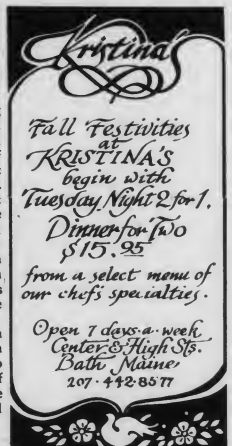 Kristina's
Fall Festivities
at
KRISTINA'S
begin with
Tuesday Night 2 for 1.
Dinner for Two
$15.95
from a select menu of
our chef's specialties.
Open 7 days·a·week
Center & High Sts.
Bath, Maine
207·442·8577